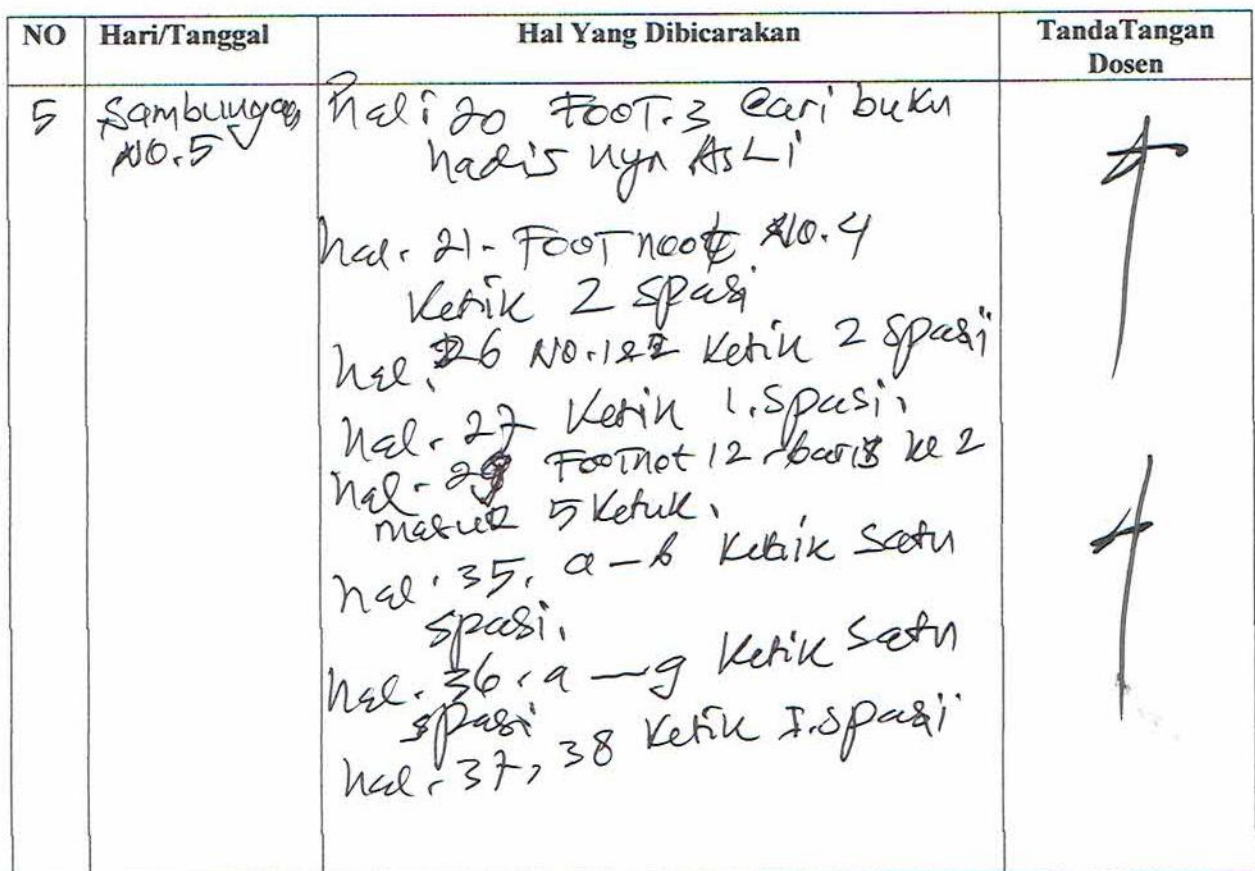 NO Hari/Tanggal Hal Yang Dibicarakan TandaTangan
Dosen
5 Sambungan hal: 20 FOOT.3 Cari buku
NO.5 hadis nya ASLi
hal. 21- FOOTnoot NO.4
Ketik 2 spasi
hal. 26 NO. Ketik 2 spasi
hal. 27 Ketik 1.spasi.
hal. 29 FOOTnot 12 baris ke 2
masuk 5 Ketuk.
hal. 35. a-b Ketik satu
spasi.
hal. 36. a-g Ketik satu
spasi
hal. 37, 38 Ketik I.spasi